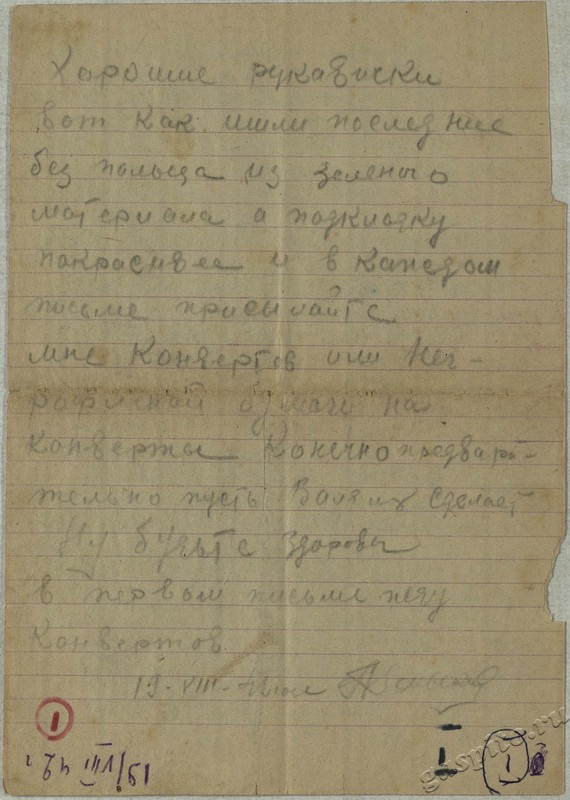 Хорошие рукавички
вот как шили последние
без пальца из зеленого
материала а подкладку
покрасивее и в каждом
письме присылайте
мне Конвертов или неч-
рофленой бумаги на
конверты Конечно предвари-
тельно пусть Валя их сделает
Ну будьте здоровы
в первом письме жду
Конвертов.
19-VIII-42
1
19/VIII 42 г.
1
1
gaspito.ru